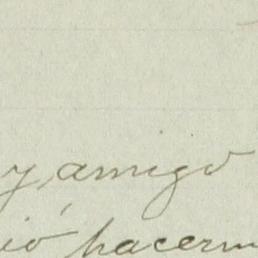 y amigo
hacerm